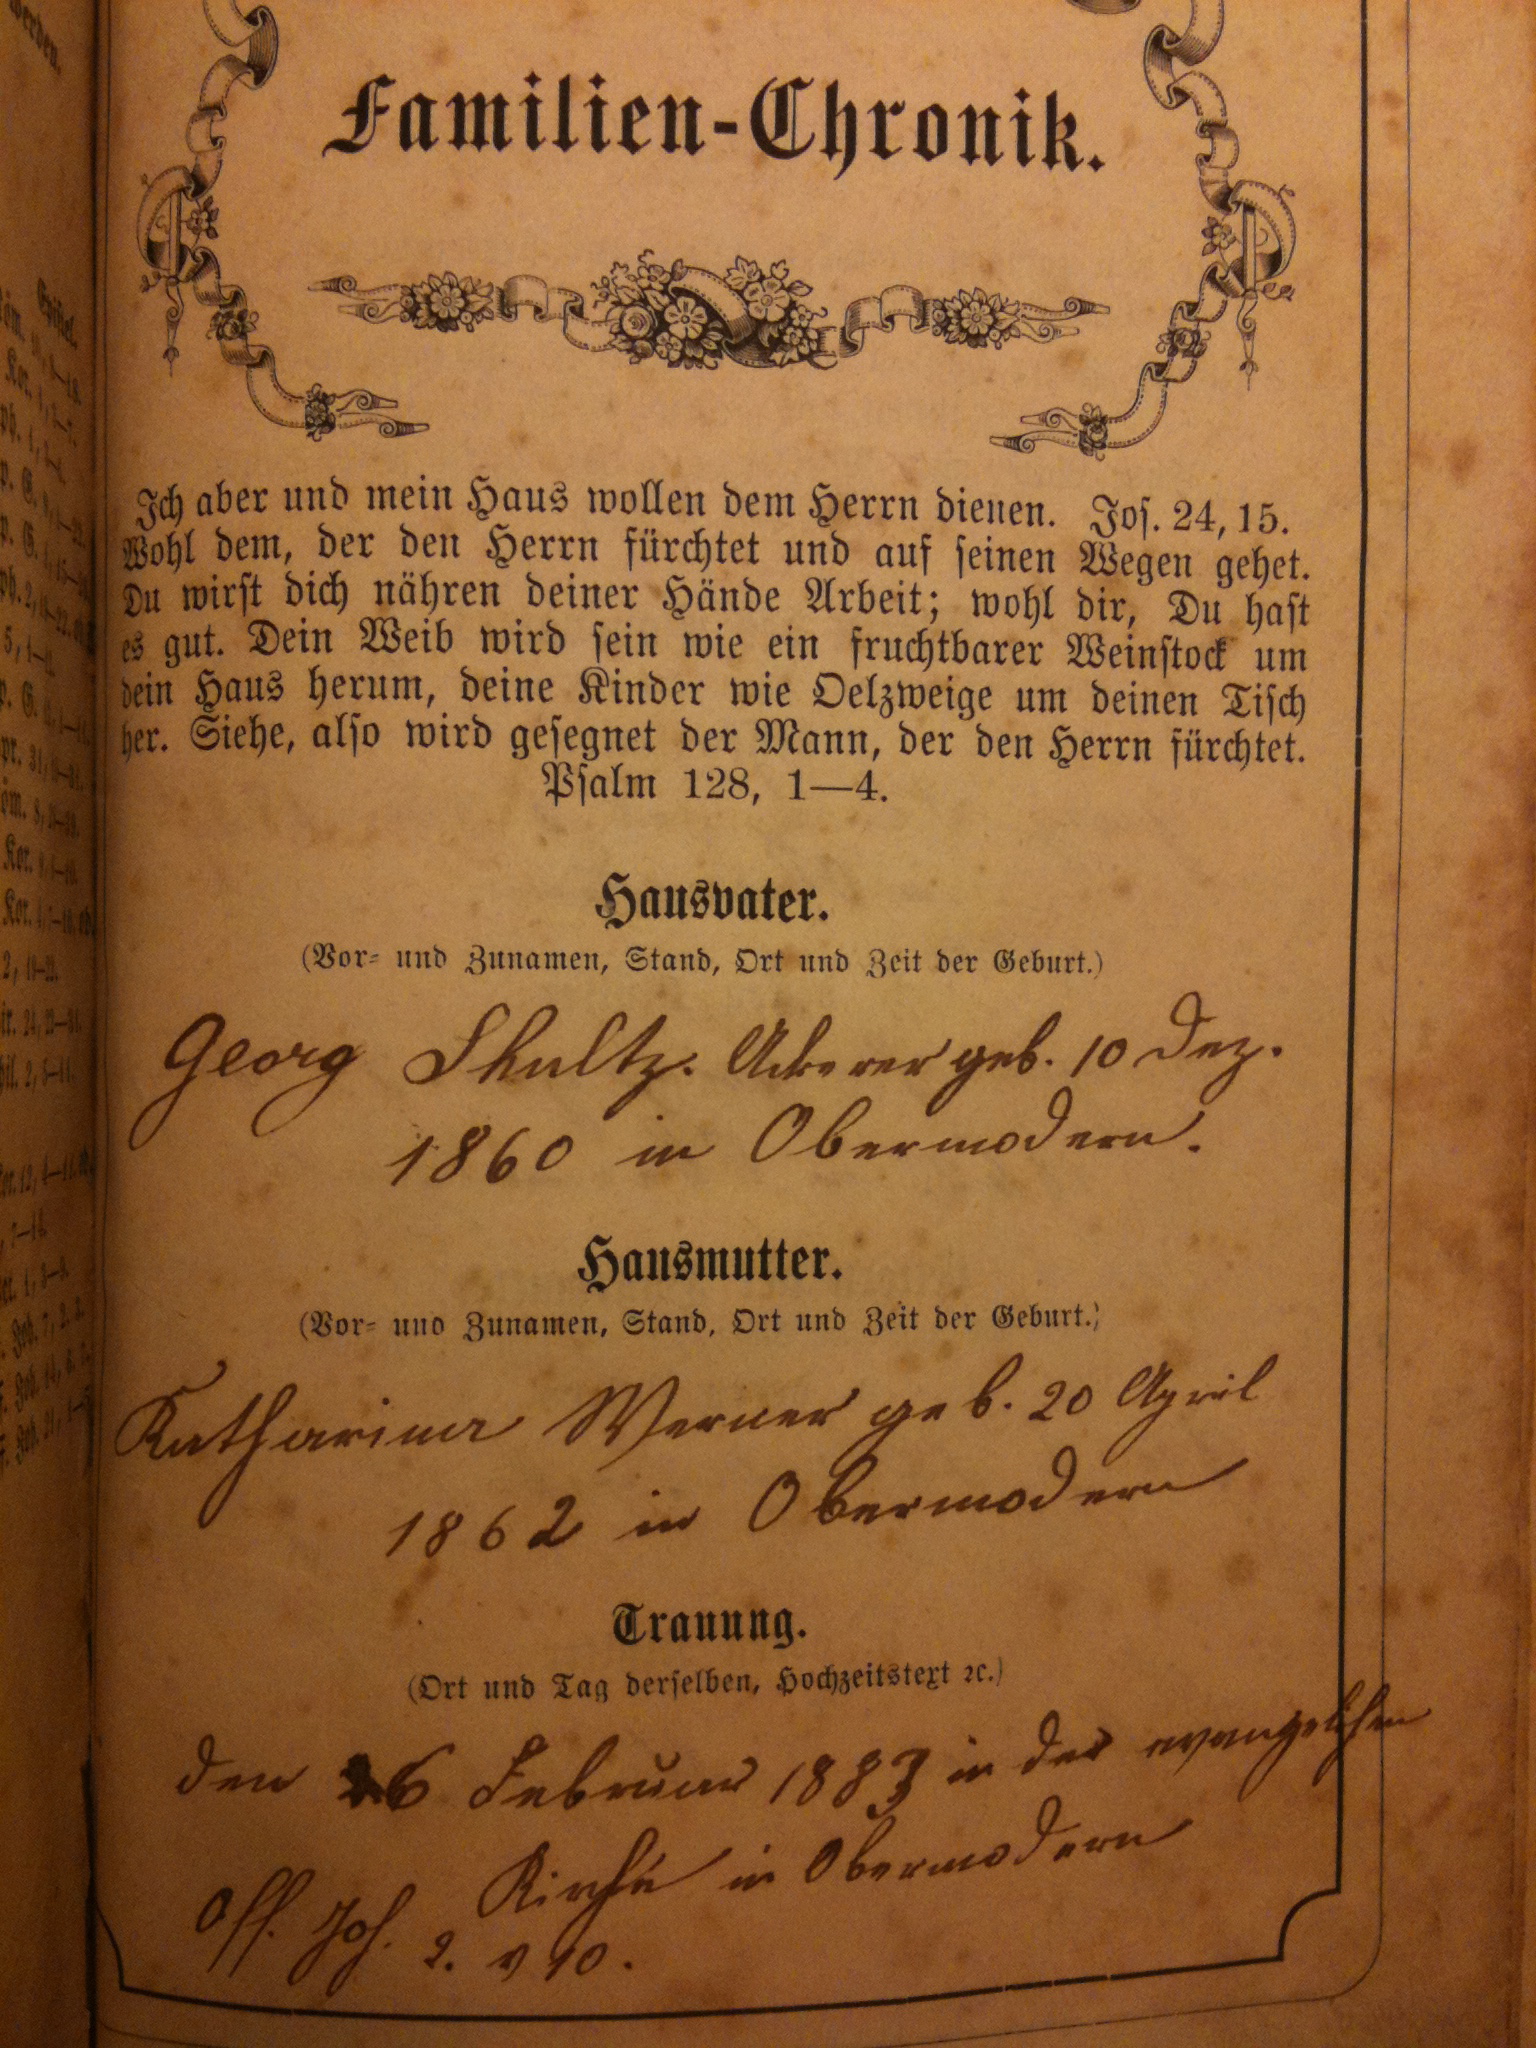 Familien-Chronik.
Ich aber und mein Haus wollen dem Herrn dienen. Jos. 24, 15.
Wohl dem, der den Herrn fürchtet und auf seinen Wegen gehet.
Du wirst dich nähren deiner Hände Arbeit; wohl dir, Du hast
es gut. Dein Weib wird sein wie ein fruchtbarer Weinstock um
dein Haus herum, deine Kinder wie Oelzweige um deinen Tisch
her. Siehe, also wird gesegnet der Mann, der den Herrn fürchtet.
Psalm 128, 1—4.
Hausvater.
(Vor- und Zunamen, Stand, Ort und Zeit der Geburt.)
Georg Shultz. Ackerer geb. 10 Dez.
1860 in Obermodern.
Hausmutter.
(Vor- und Zunamen, Stand, Ort und Zeit der Geburt.)
Katharina Werner geb. 20 April
1862 in Obermodern
Trauung.
(Ort und Tag derselben, Hochzeitstext ꝛc.)
den 26 Februar 1883 in der evangelischen
Kirche in Obermodern
Off. Joh. 2. v 10.